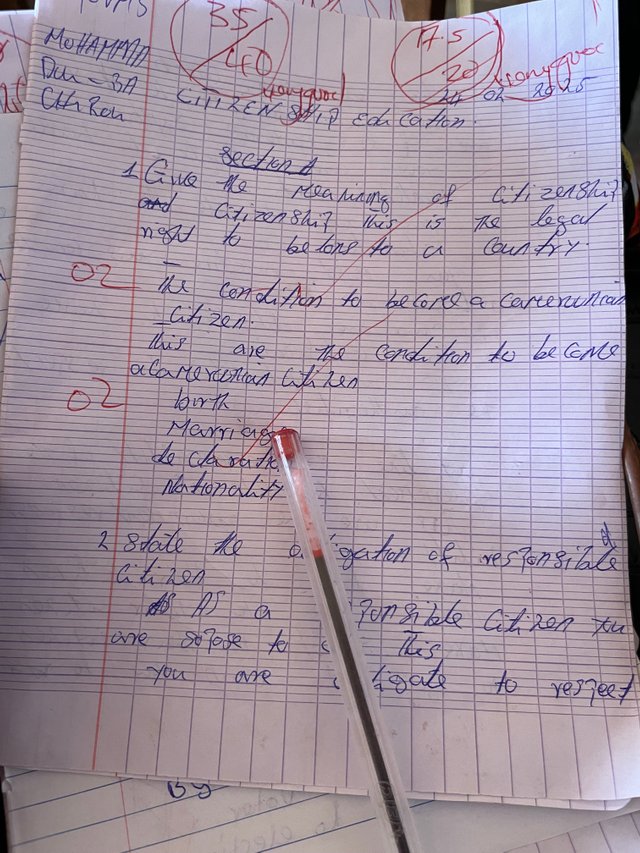 35
40
17.5
20
MOHAMMA
24 02 2025
CITIZEN SHIP Education.
Section A
1 Give the meaning of citizenship
and citizenship this is the legal
right to belons to a country.
02
the condition to become a camerounian
citizen.
this are the condition to become
a camerounian citizen
02
birth
Marriage
declarati
Nationality
2 state the gation of responsible
citizen
As a ponsible citizen you
are sopose to this
you are ligate to respect